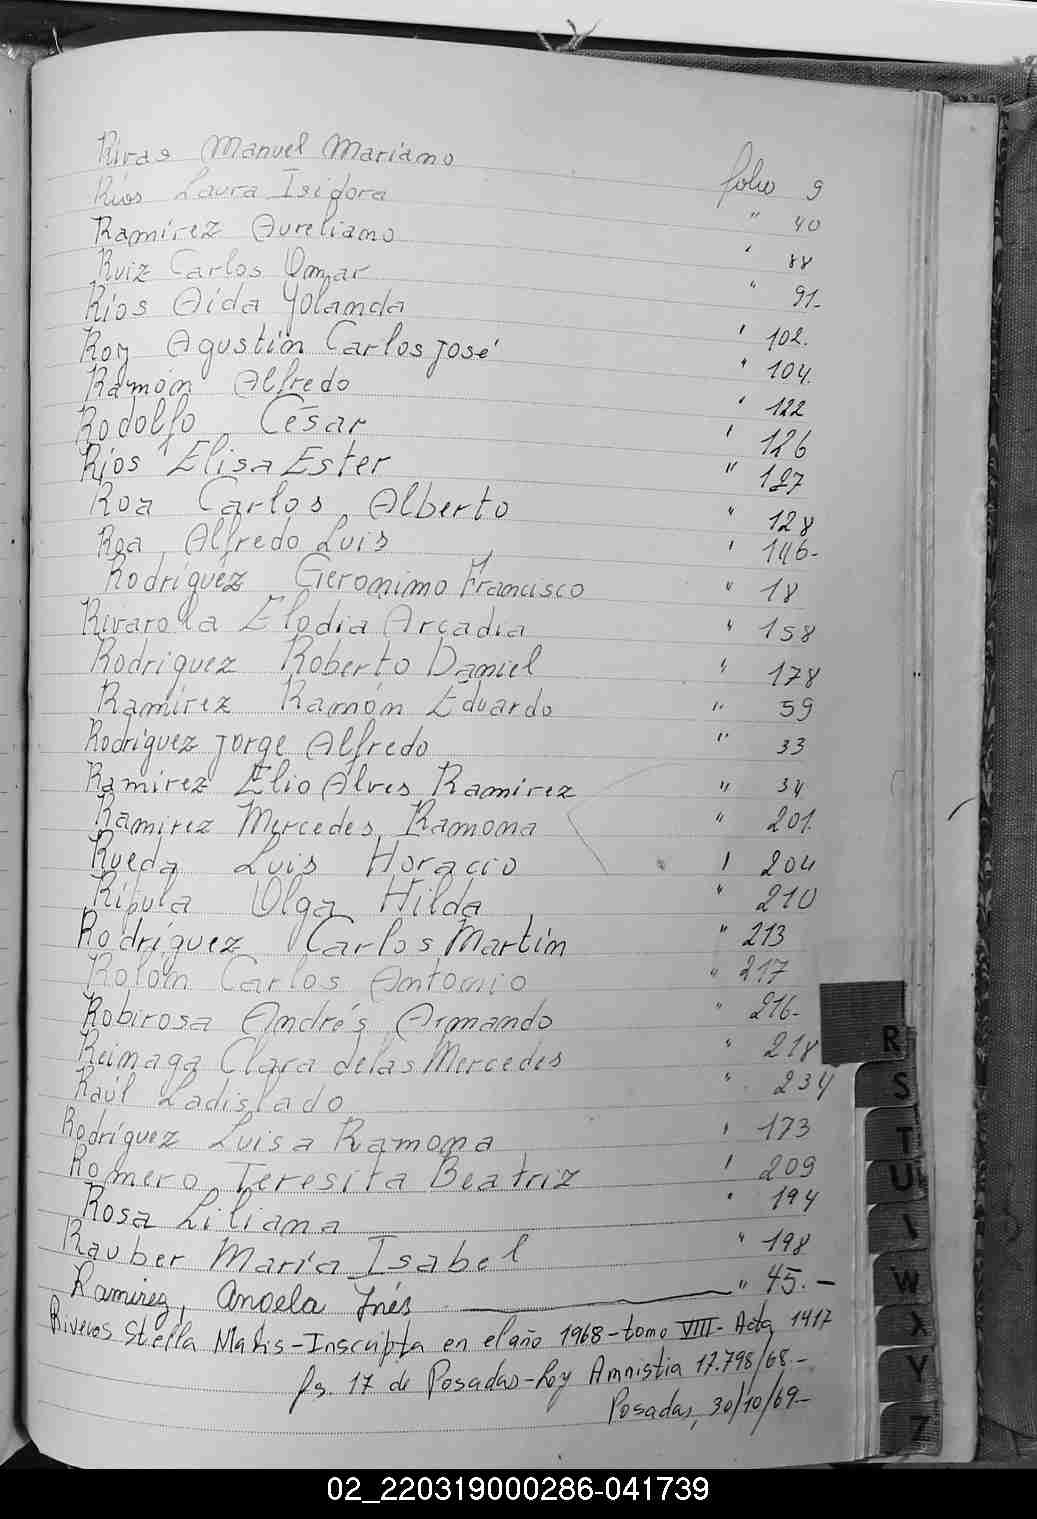 Rivas Manuel Mariano folio 9
Ríos Laura Isidora " 40
Ramírez Aureliano ' 88
Ruiz Carlos Omar " 91-
Ríos Aída Yolanda ' 102.
Roy Agustín Carlos José ' 104.
Ramón Alfredo ' 122
Rodolfo César ' 126
Ríos Elisa Ester " 127
Roa Carlos Alberto " 128
Roa Alfredo Luis ' 146-
Rodríguez Geronimo Francisco " 18
Rivarola Elodia Arcadia " 158
Rodriguez Roberto Daniel " 178
Ramírez Ramón Eduardo " 59
Rodríguez Jorge Alfredo " 33
Ramirez Elio Alves Ramirez " 34
Ramirez Mercedes Ramona " 201.
Rueda Luis Horacio ' 204
Ripula Olga Hilda " 210
Rodríguez Carlos Martín " 213
Rolón Carlos Antonio " 217
Robirosa Andrés Armando " 216-
Reinaga Clara de las Mercedes " 218
Raúl Ladislado " 234
Rodríguez Luisa Ramona ' 173
Romero Teresita Beatriz ' 209
Rosa Liliana ' 194
Rauber María Isabel " 198
Ramirez, Angela Inés " 45.-
Riveros Stella Maris-Inscripta en el año 1968-tomo VIII- Acta 1417
fs. 17 de Posadas-Ley Amnistia 17.798/68-
Posadas, 30/10/69-
R
S
T
U
W
X
Y
Z
02_220319000286-041739